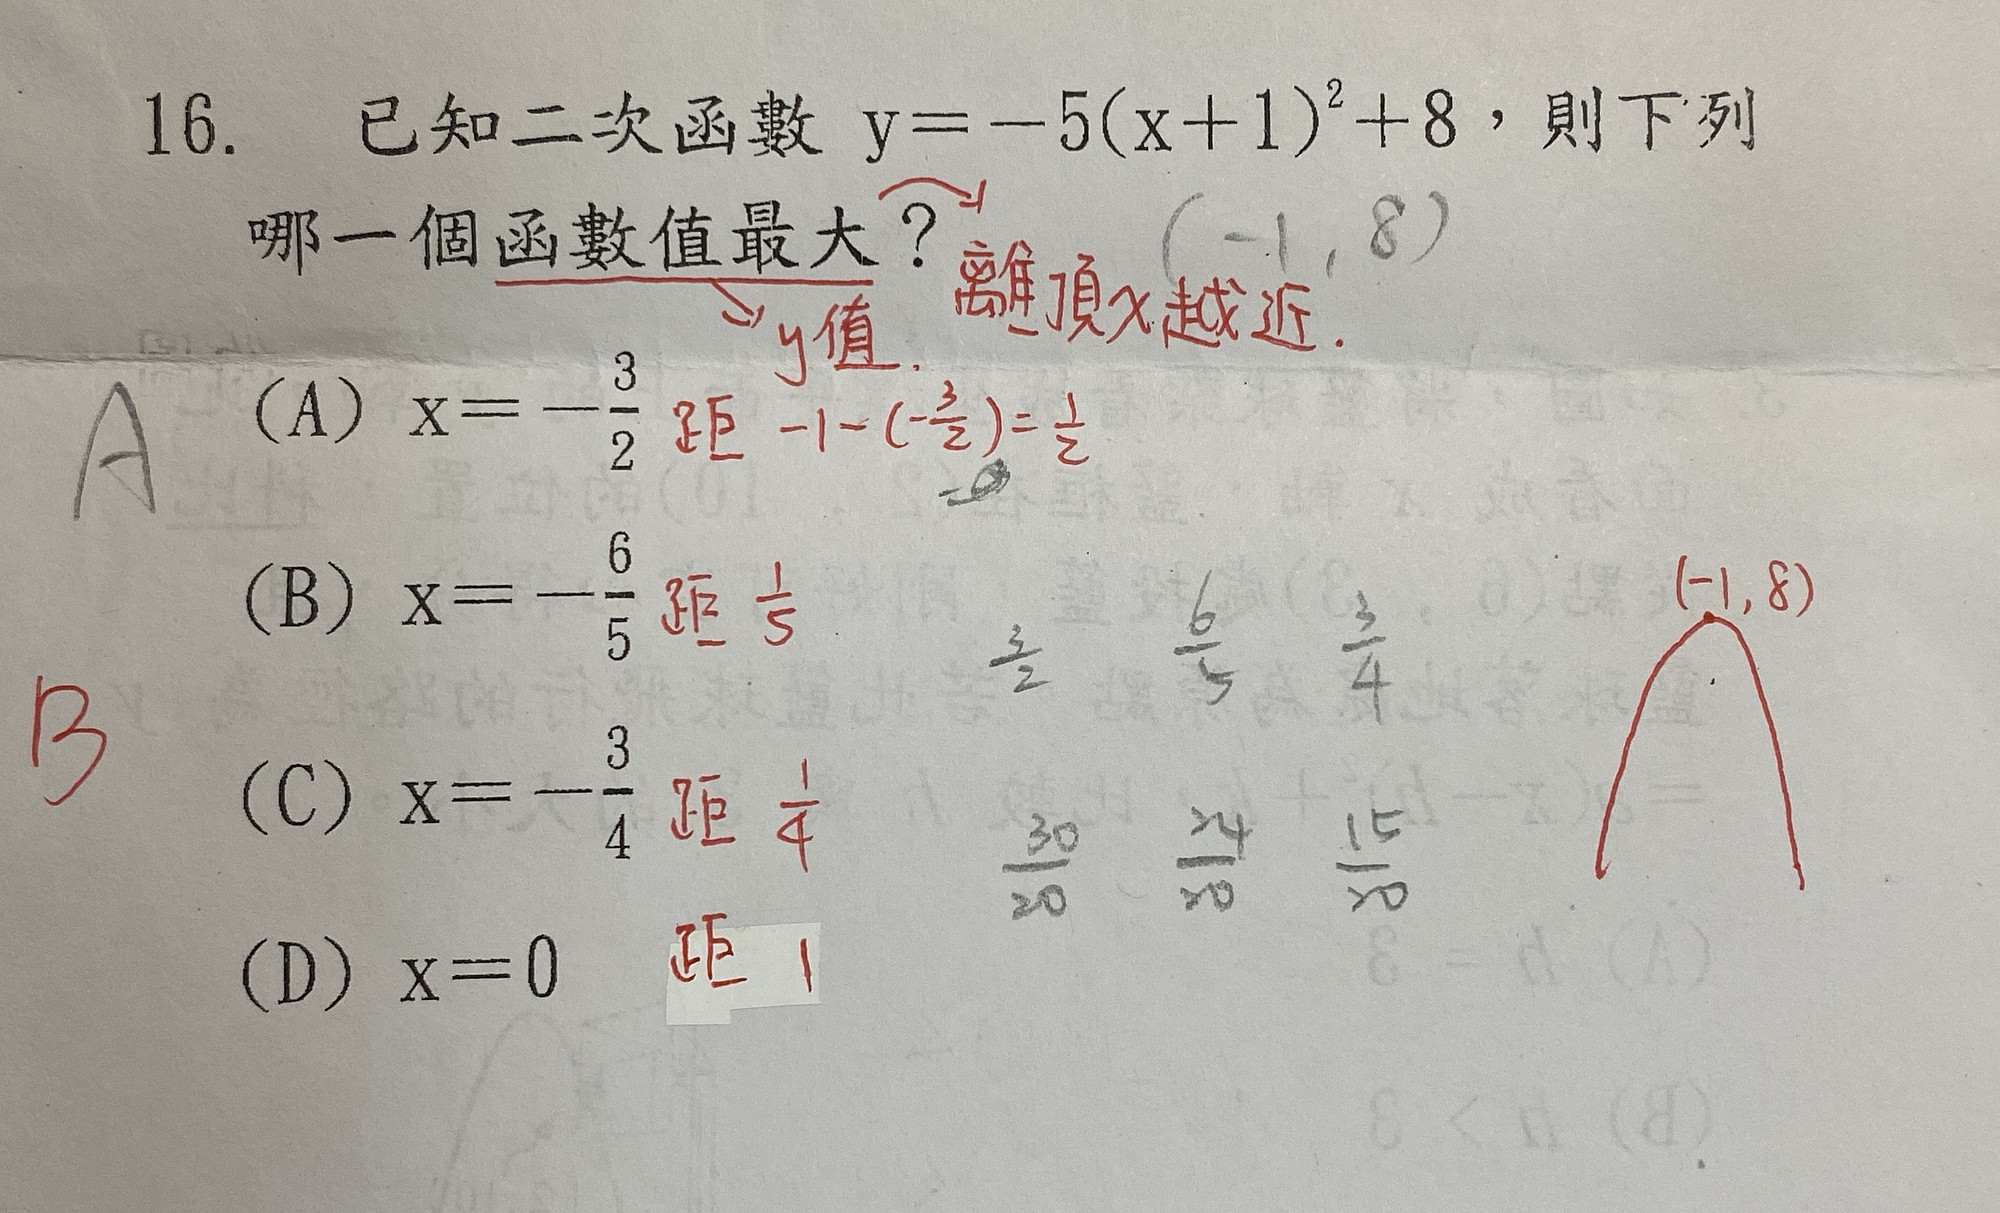 16. 已知二次函數 y=-5(x+1)²+8，則下列
哪一個函數值最大？
(-1, 8)
離頂x越近.
y值.
A
(A) x=-3/2 距 -1-(-3/2)=1/2
(B) x=-6/5 距 1/5
3/2 6/5 3/4
(-1, 8)
B
(C) x=-3/4 距 1/4
30/20 24/20 15/20
(D) x=0 距 1